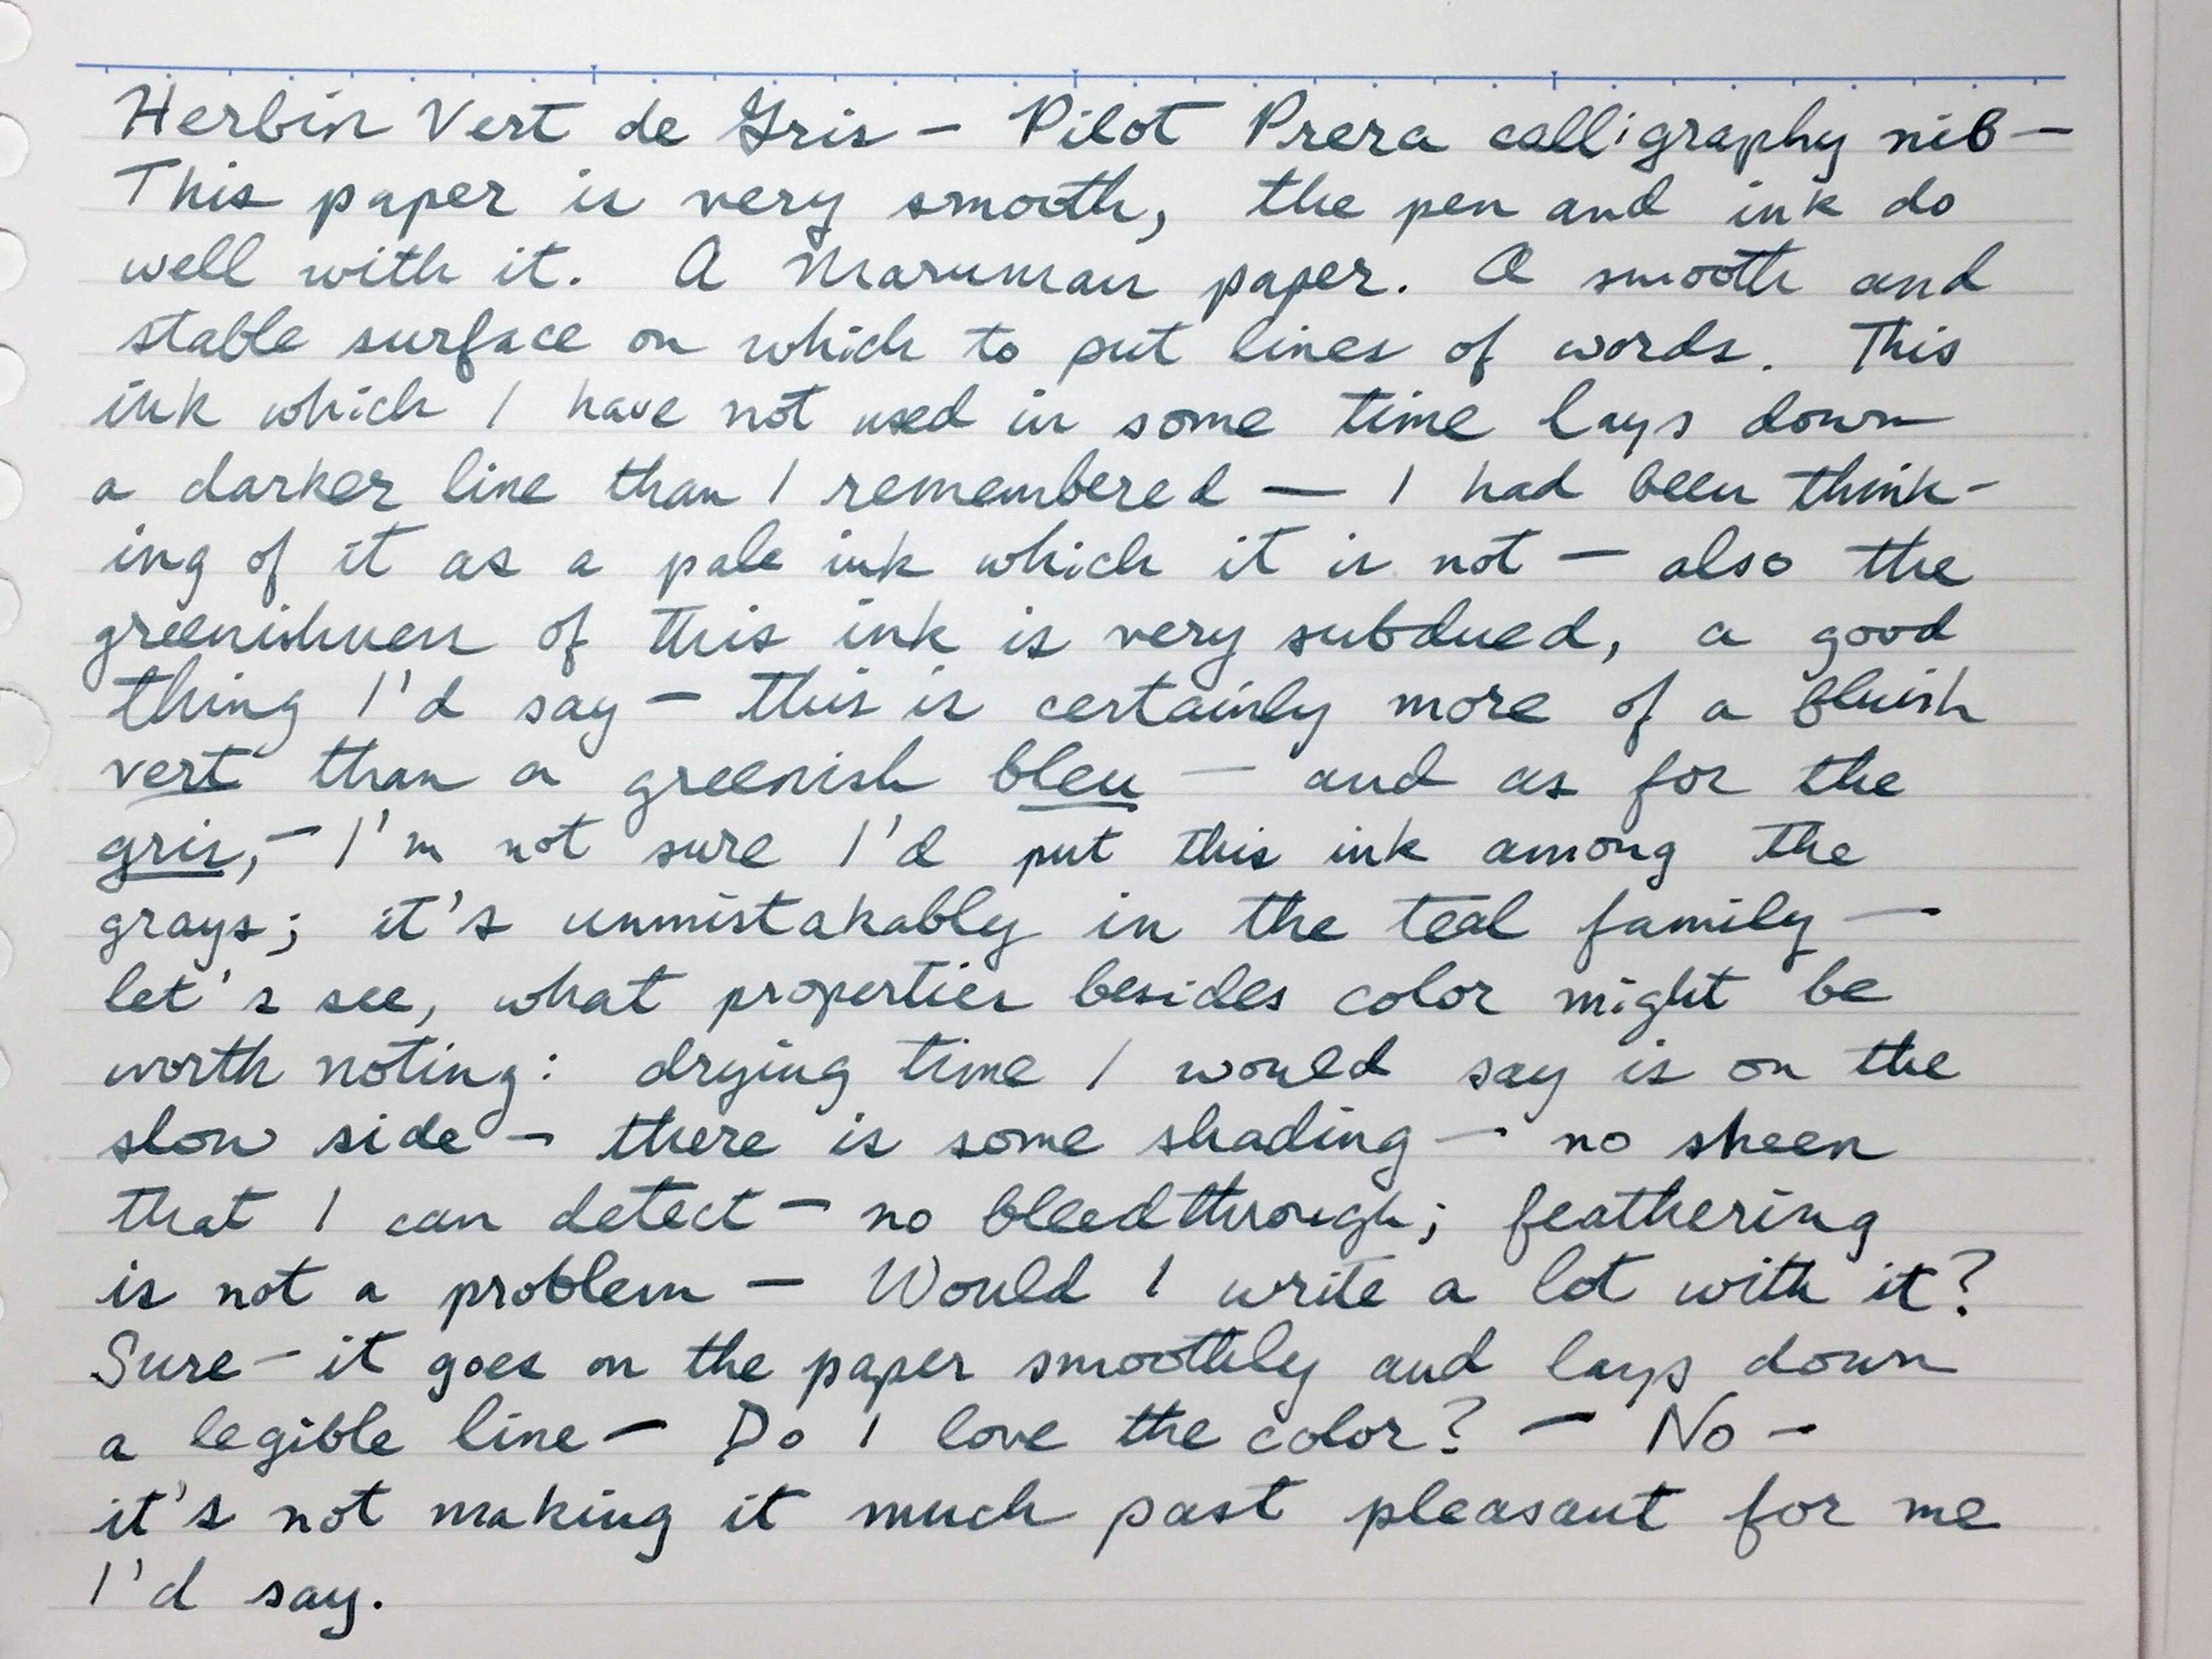 Herbin Vert de Gris — Pilot Prera calligraphy nib —
This paper is very smooth, the pen and ink do
well with it. A Maruman paper. A smooth and
stable surface on which to put lines of words. This
ink which I have not used in some time lays down
a darker line than I remembered — I had been think-
ing of it as a pale ink which it is not — also the
greenishness of this ink is very subdued, a good
thing I'd say — this is certainly more of a bluish
vert than a greenish bleu — and as for the
gris, — I'm not sure I'd put this ink among the
grays; it's unmistakably in the teal family —
let's see, what properties besides color might be
worth noting: drying time I would say is on the
slow side — there is some shading — no sheen
that I can detect — no bleedthrough; feathering
is not a problem — Would I write a lot with it?
Sure — it goes on the paper smoothly and lays down
a legible line — Do I love the color? — No —
it's not making it much past pleasant for me
I'd say.